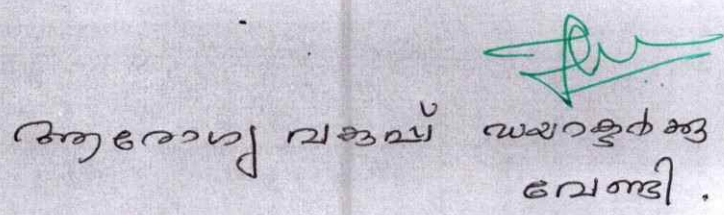 ആരോഗ്യ വകുപ്പ് ഡയറക്ടർക്കു
വേണ്ടി.